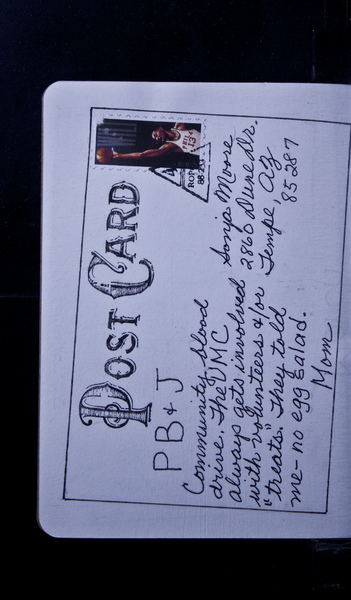 POST CARD
PB & J
Community blood
drive. The UMC
always gets involved
with volunteers &/or
"treats." They told
me-no egg salad.
Mom
Sonja Moore
2860 Dune Dr.
Tempe, AZ
85287
PHILA
13